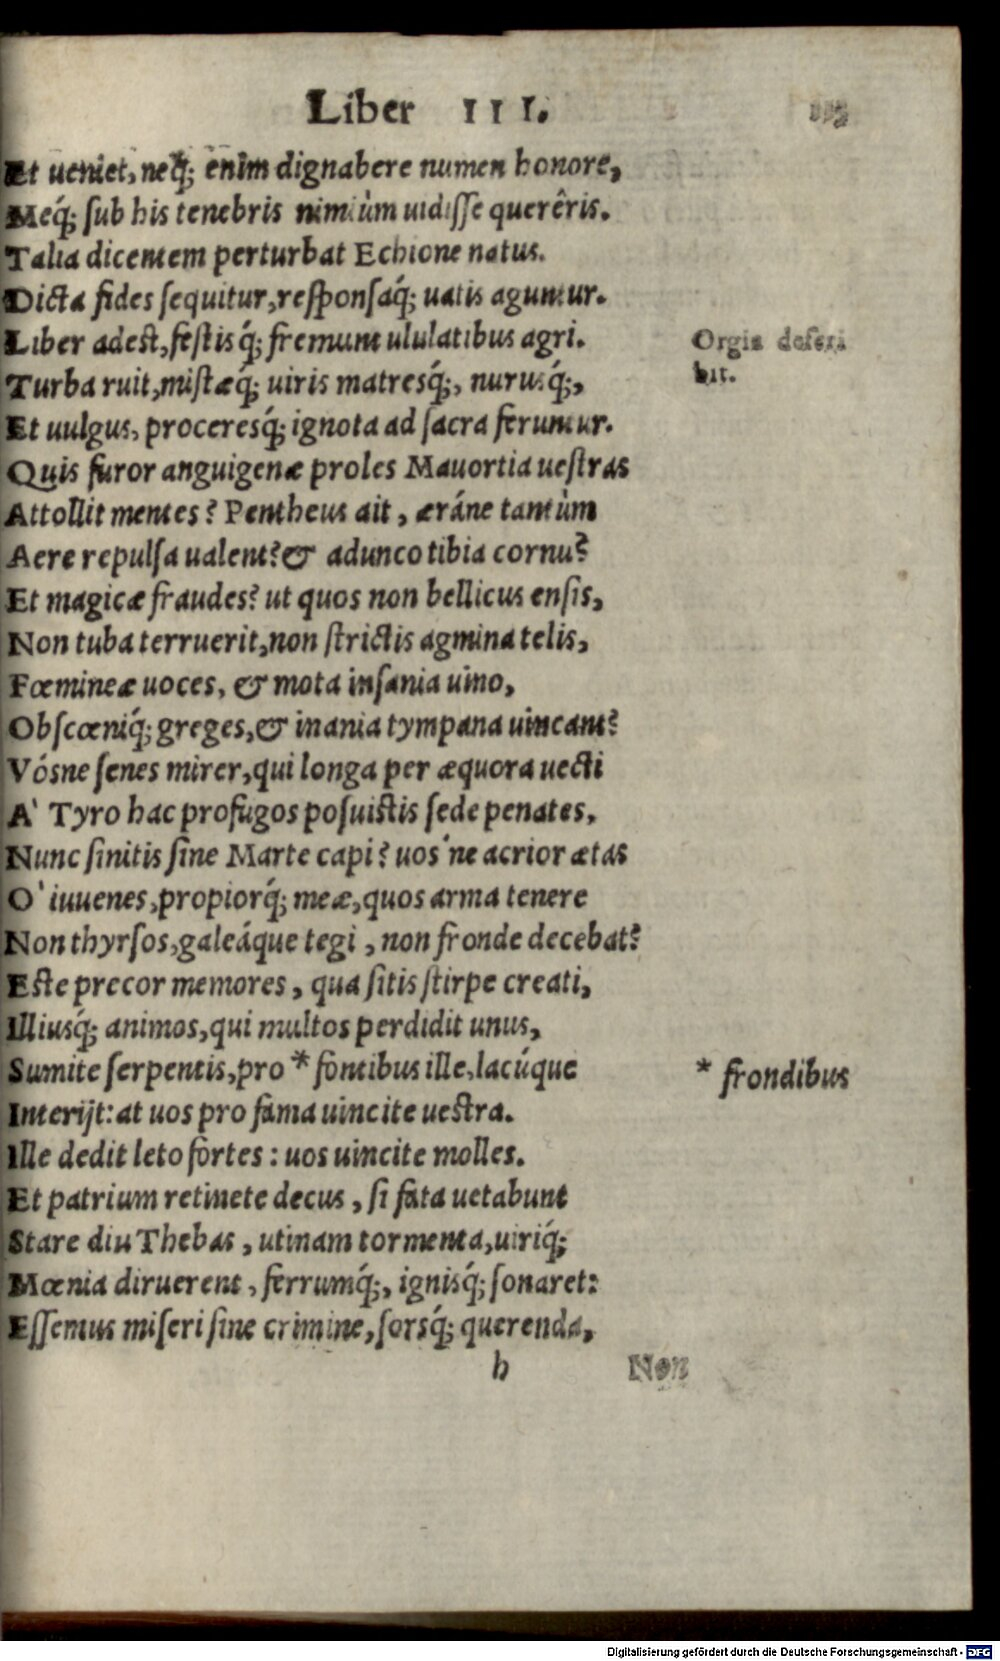 Liber III. 113
Et ueniet, neq́; enim dignabere numen honore,
Meq́; ſub his tenebris nimiùm uidiſſe querêris.
Talia dicentem perturbat Echione natus.
Dicta fides ſequitur, reſponſaq́; uatis aguntur.
Liber adeſt, feſtisq́; fremunt ululatibus agri.
Orgia deſcri
bit.
Turba ruit, miſtæq́; uiris matresq́;, nurusq́;,
Et uulgus, proceresq́; ignota ad ſacra feruntur.
Quis furor anguigenæ proles Mauortia ueſtras
Attollit mentes? Pentheus ait, æráne tantùm
Aere repulſa ualent? & adunco tibia cornu?
Et magicæ fraudes? ut quos non bellicus enſis,
Non tuba terruerit, non ſtrictis agmina telis,
Fœmineæ uoces, & mota inſania uino,
Obſcœniq́; greges, & inania tympana uincant?
Vósne ſenes mirer, qui longa per æquora uecti
A' Tyro hac profugos poſuiſtis ſede penates,
Nunc ſinitis ſine Marte capi? uos'ne acrior ætas
O' iuuenes, propiorq́; meæ, quos arma tenere
Non thyrſos, galeáque tegi, non fronde decebat?
Eſte precor memores, qua ſitis ſtirpe creati,
Illiusq́; animos, qui multos perdidit unus,
Sumite ſerpentis, pro * fontibus ille, lacúque
* frondibus
Interijt: at uos pro fama uincite ueſtra.
Ille dedit leto fortes: uos uincite molles.
Et patrium retinete decus, ſi fata uetabunt
Stare diu Thebas, utinam tormenta, uiriq́;
Mœnia diruerent, ferrumq́;, ignisq́; ſonaret:
Eſſemus miſeri ſine crimine, ſorsq́; querenda,
h Non
Digitalisierung gefördert durch die Deutsche Forschungsgemeinschaft - DFG